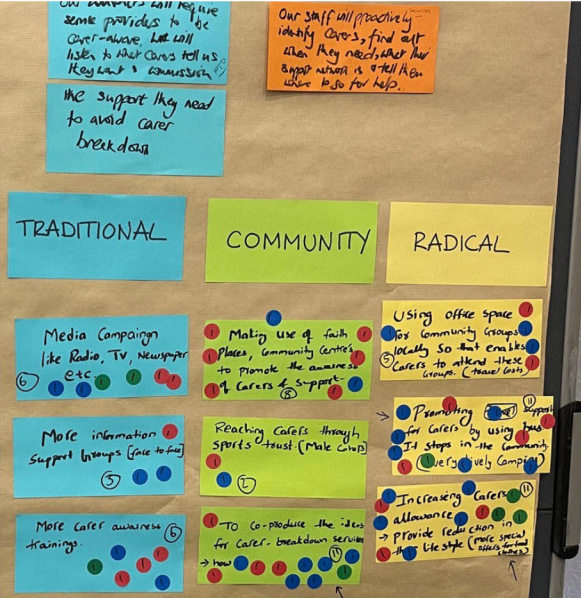 semle providers to be
carer-aware, but will
listen to what carers tell us
they want & commission
the support they need
to avoid carer
breakdown
Our staff will proactively
identify carers, find out
when they need, what their
support network is & tell them
where to go for help.
TRADITIONAL
COMMUNITY
RADICAL
Media Campaign
like Radio, TV, Newspaper
etc
6
More information
Support Groups [face to face]
5
More carer awareness
trainings.
6
Making use of faith
Places, Community Centre's
to promote the awareness
of Carers & Support
8
Reaching Carers through
sports trust. (Male Carers)
2
To co-produce the ideas
for carer-breakdown services
→ how
11
Using office space
for Community Groups
locally so that enables
5
Carers to attend these
Groups. (travel costs)
11
Promoting support
for Carers by using bus
stops in the Community
Increasing Carers
11
allowance
→ provide reduction in
lifestyle (more special
offers for food
clothes)